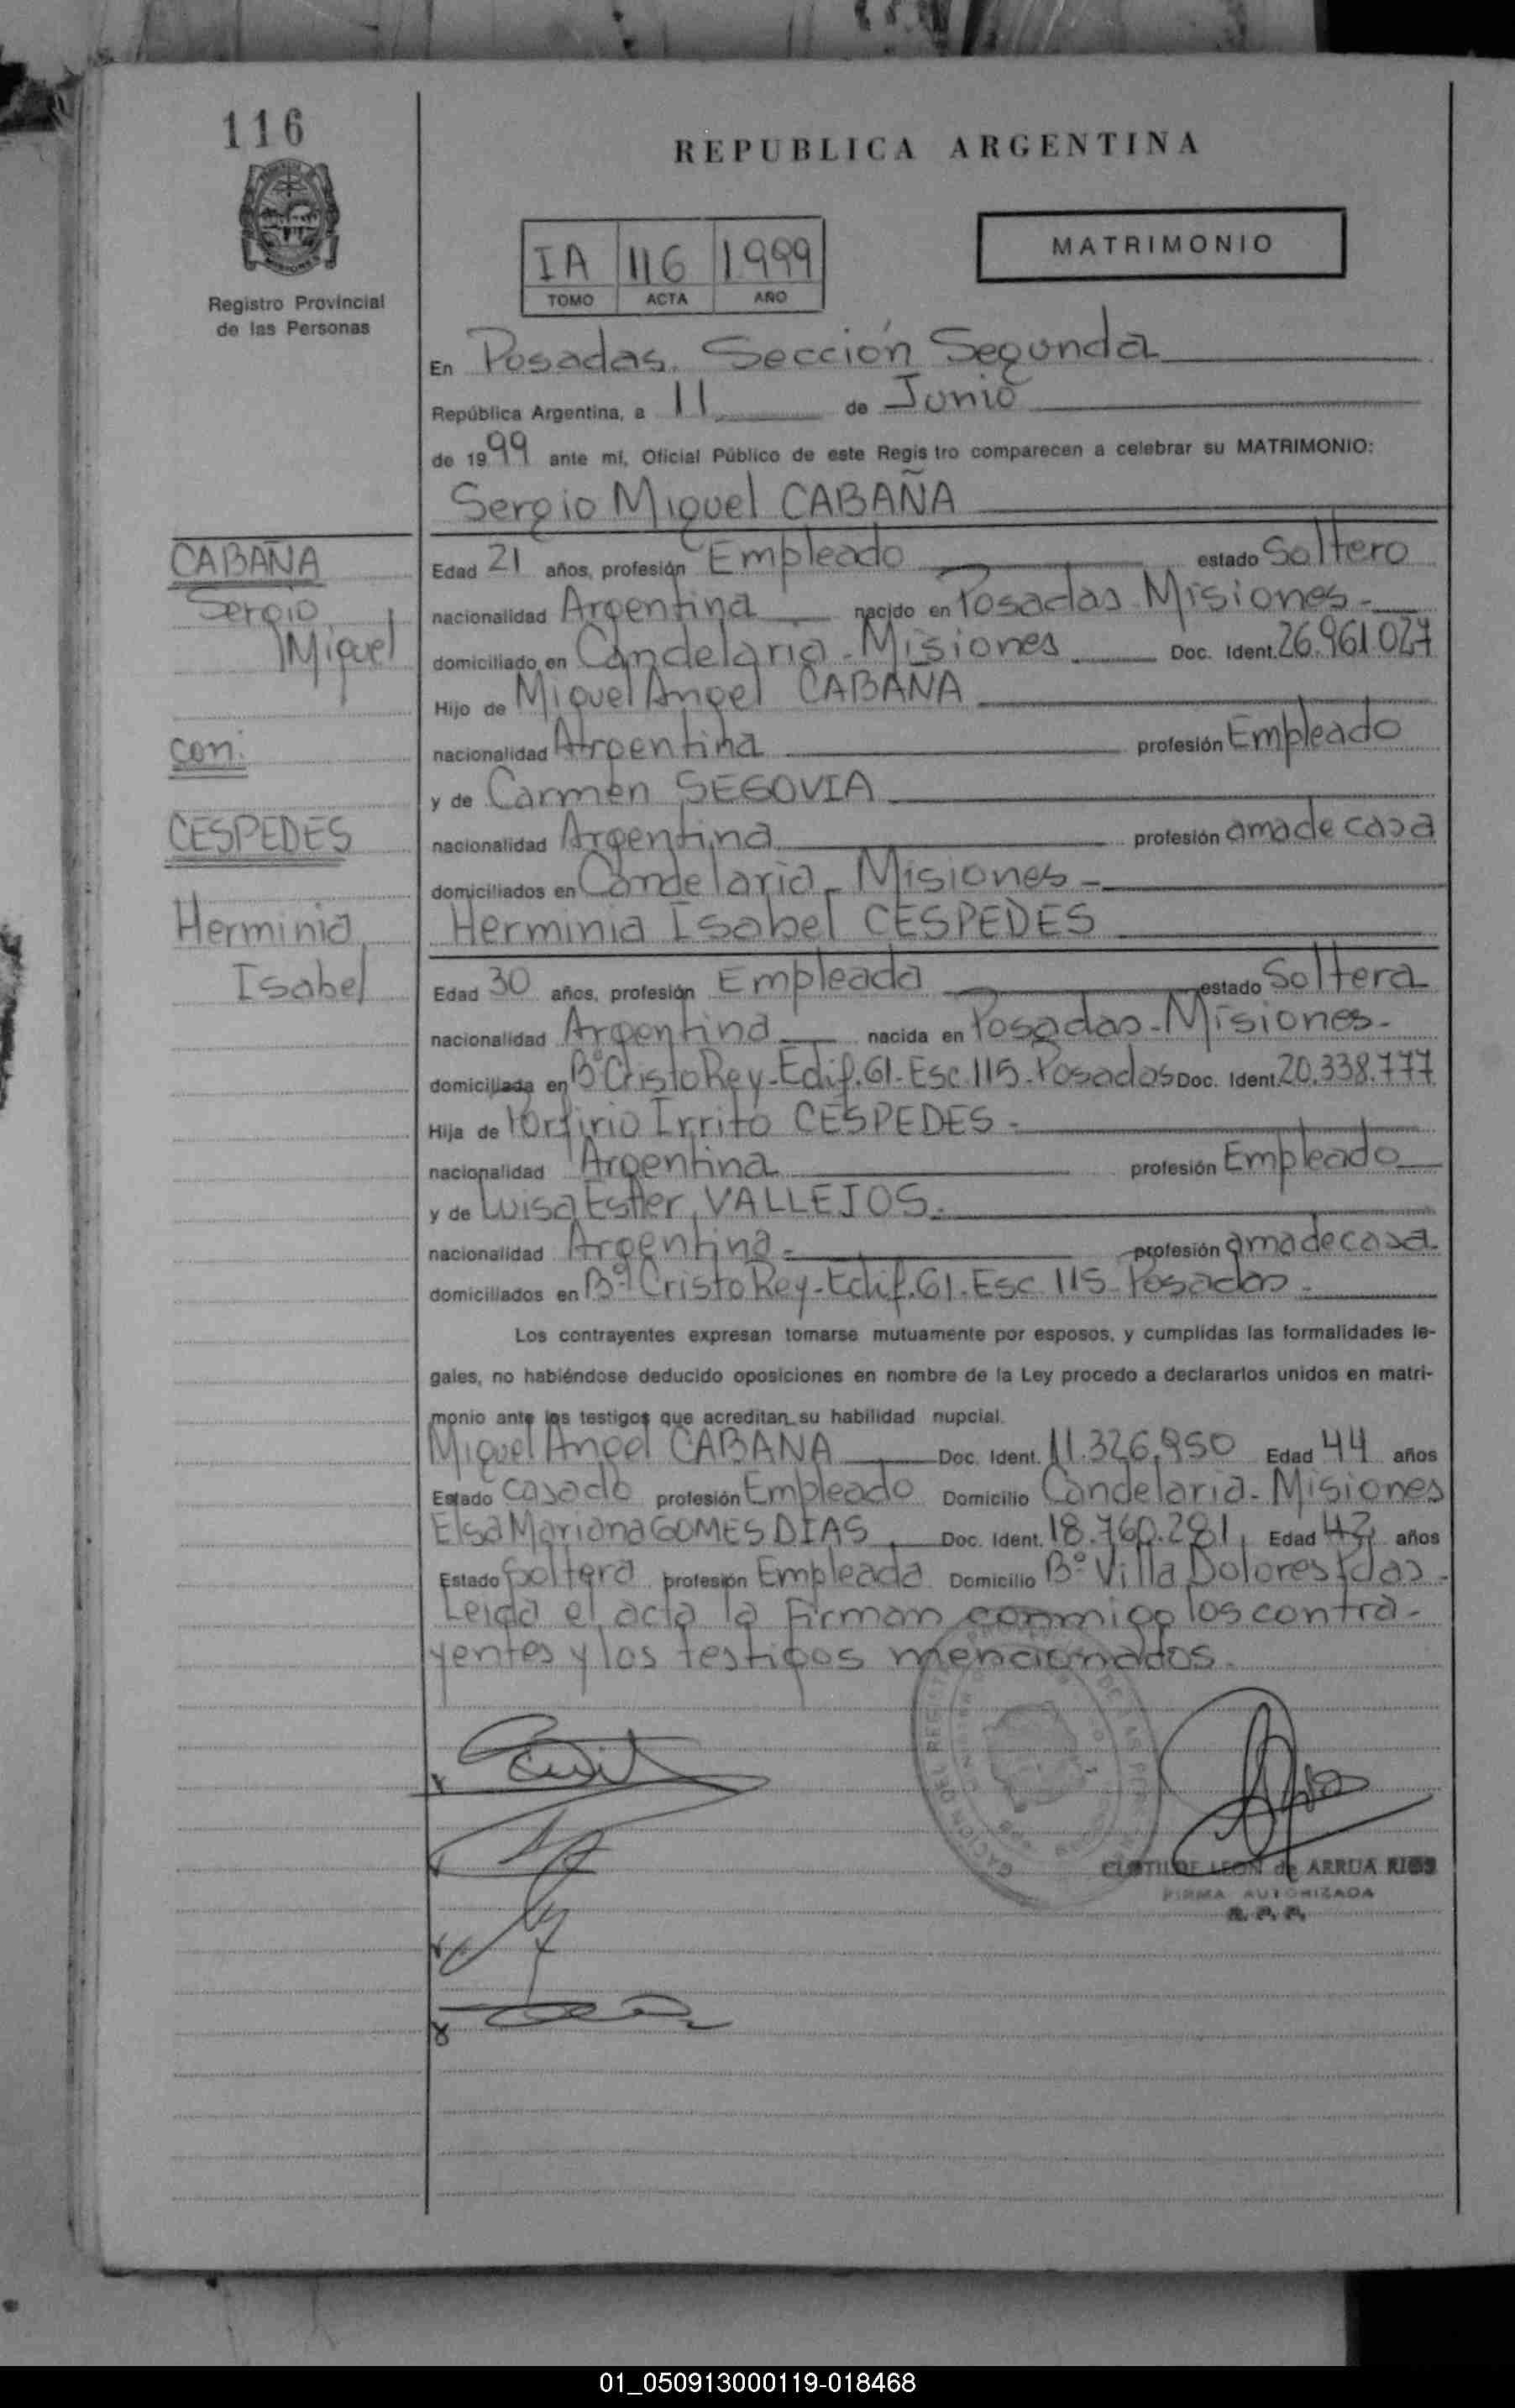 116
REPUBLICA ARGENTINA
MATRIMONIO
IA 116 1999
TOMO ACTA AÑO
Registro Provincial
de las Personas
En Posadas. Sección Segunda
República Argentina, a 11 de Junio
de 1999 ante mí, Oficial Público de este Registro comparecen a celebrar su MATRIMONIO:
Sergio Miguel CABAÑA
CABAÑA
Sergio
Miguel
con:
CESPEDES
Herminia
Isabel
Edad 21 años, profesión Empleado estado Soltero
nacionalidad Argentina nacido en Posadas Misiones-
domiciliado en Candelaria-Misiones Doc. Ident. 26.961.027
Hijo de Miguel Angel CABAÑA
nacionalidad Argentina profesión Empleado
y de Carmen SEGOVIA
nacionalidad Argentina profesión ama de casa
domiciliados en Candelaria-Misiones-
Herminia Isabel CESPEDES
Edad 30 años, profesión Empleada estado Soltera
nacionalidad Argentina nacida en Posadas-Misiones-
domiciliada en Bº Cristo Rey-Edif.61-Esc.115-Posadas Doc. Ident. 20.338.777
Hija de Porfirio Irrito CESPEDES-
nacionalidad Argentina profesión Empleado
y de Luisa Ester VALLEJOS-
nacionalidad Argentina- profesión ama de casa
domiciliados en Bº Cristo Rey-Edif.61-Esc.115-Posadas-
Los contrayentes expresan tomarse mutuamente por esposos, y cumplidas las formalidades le-
gales, no habiéndose deducido oposiciones en nombre de la Ley procedo a declararlos unidos en matri-
monio ante los testigos que acreditan su habilidad nupcial.
Miguel Angel CABAÑA Doc. Ident. 11.326.950 Edad 44 años
Estado Casado profesión Empleado Domicilio Candelaria-Misiones
Elsa Mariana GOMES DIAS Doc. Ident. 18.760.281 Edad 42 años
Estado Soltera profesión Empleada Domicilio Bº Villa Dolores Pdas-
Leida el acta la firman conmigo los contra-
yentes y los testigos mencionados.
CLOTILDE LEON de ARRUA RIOS
FIRMA AUTORIZADA
R. P. P.
01_050913000119-018468